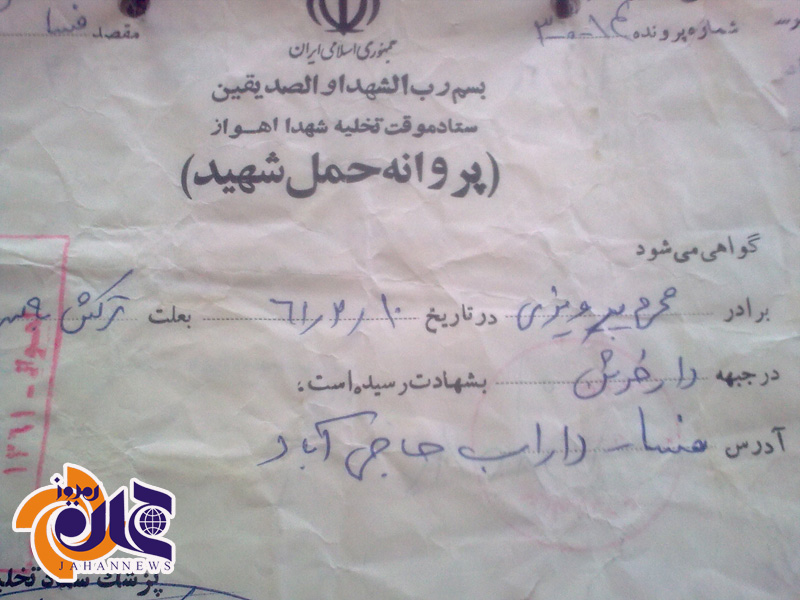 شماره پرونده
مقصد فسا
جمهوری اسلامی ایران
بسم رب الشهدا و الصدیقین
ستاد موقت تخلیه شهدا اهواز
(پروانه حمل شهید)
گواهی می شود
برادر محرم پرویزی در تاریخ ۶۱/۲/۱۰ بعلت ترکش
در جبهه دارخوین بشهادت رسیده است.
آدرس فسا - داراب حاجی آباد
اهواز - ۱۳۶۱
جهان امروز
JAHANNEWS
پزشک ستاد تخلیه